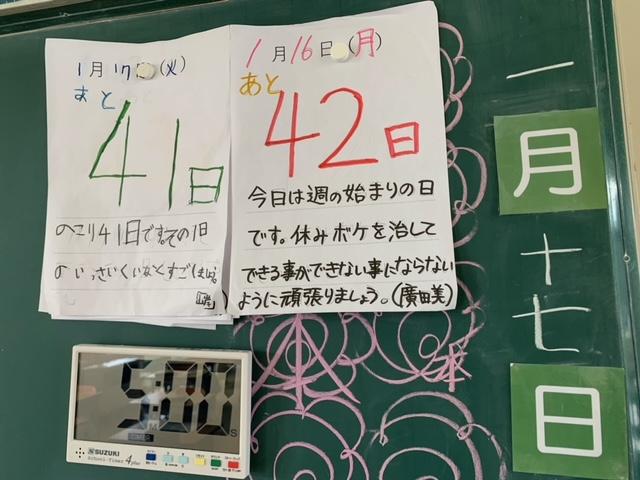 1月17日(火)
あと
41日
のこり41日です。その1日
1月16日(月)
あと
42日
今日は週の始まりの日
です。休みボケを治して
できる事ができない事にならない
ように頑張りましょう。(廣田美)
一
月
十
七
日
5:00
M
S
TIMER
SUZUKI
School-Timer 4 plus